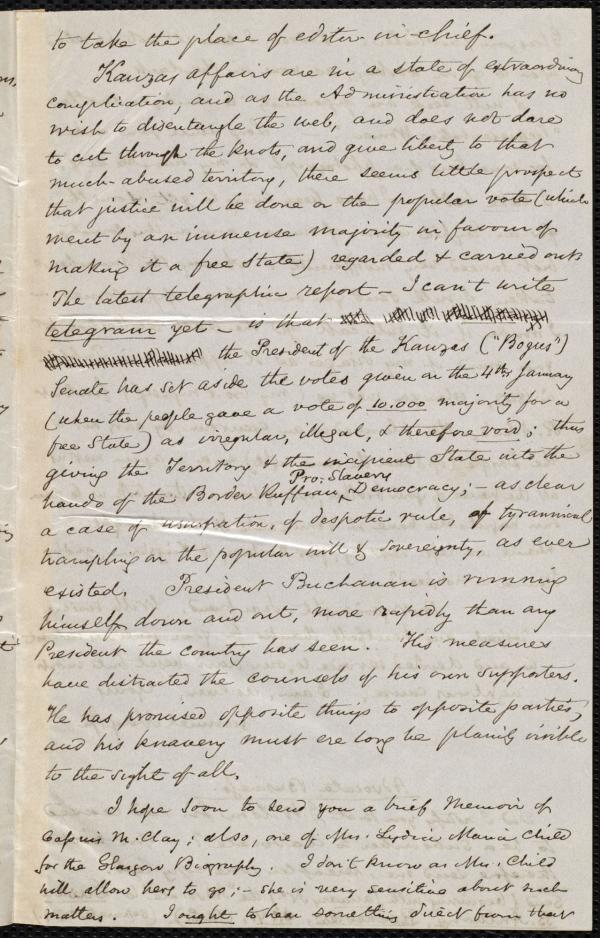 to take the place of editor-in-chief.
Kanzas affairs are in a state of extraordinary
complication, and as the Administration has no
wish to disentangle the web, and does not dare
to cut through the knots, and give liberty to that
much-abused territory, there seems little prospect
that justice will be done or the popular vote (which
went by an immense majority in favour of
making it a free State) regarded & carried out.
The latest telegraphic report - I can't write
telegram yet - is that
the President of the Kanzas ("Bogus")
Senate has set aside the votes given on the 4th January
(when the people gave a vote of 10.000 majority for a
free State) as irregular, illegal, & therefore void; thus
giving the Territory & the incipient State into the
hands of the Border Ruffian, Pro-Slavery Democracy; - as clear
a case of usurpation, of despotic rule, of tyrannical
trampling on the popular will & sovereignty, as ever
existed. President Buchanan is running
himself down and out, more rapidly than any
President the country has seen. His measures
have distracted the counsels of his own supporters.
He has promised opposite things to opposite parties,
and his knavery must ere long be plainly visible
to the sight of all.
I hope soon to send you a brief Memoir of
Cassius M. Clay; also, one of Mrs. Lydia Maria Child
for the Glasgow Biography. I don't know as Mrs. Child
will allow hers to go; - she is very sensitive about such
matters. I ought to hear something direct from that